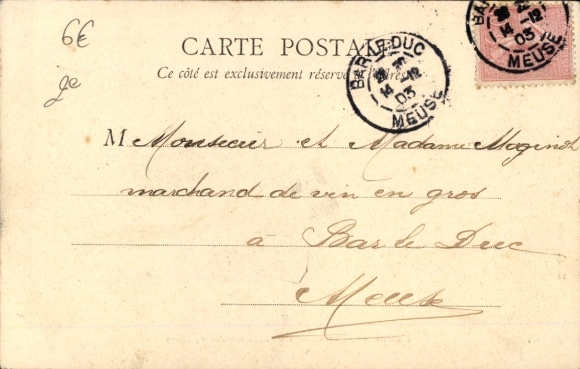 6€
CARTE POSTALE
Ce côté est exclusivement réservé à l'adresse
BAR-LE-DUC
14 -12
03
MEUSE
BAR
14 -12
03
MEUSE
M Monsieur et Madame Maginot
marchand de vin en gros
à Bar le Duc
Meuse